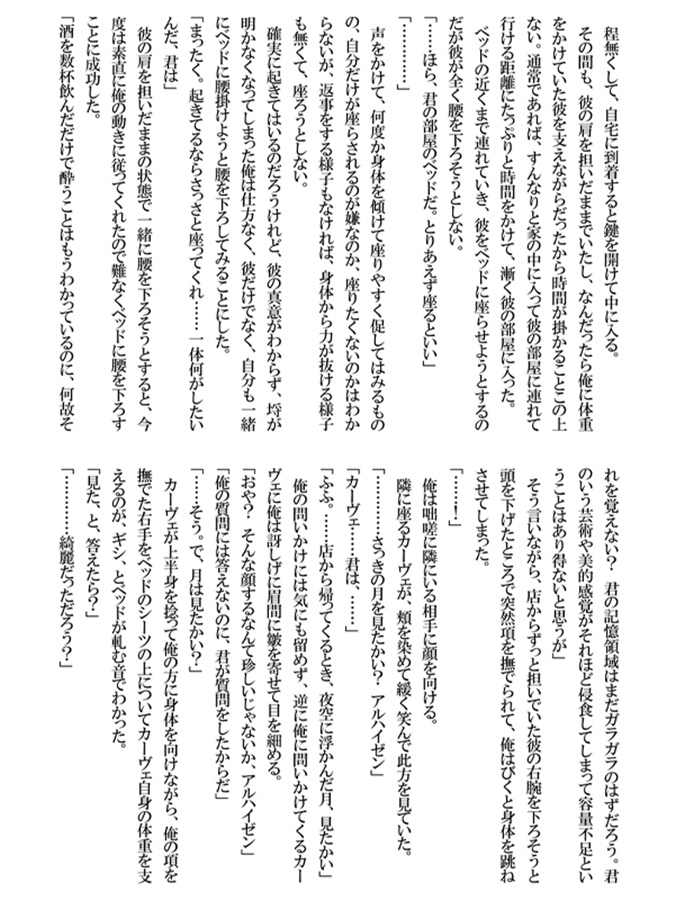 程無くして、自宅に到着すると鍵を開けて中に入る。
その間も、彼の肩を担いだままでいたし、なんだったら俺に体重
をかけていた彼を支えながらだったから時間が掛かることこの上
ない。通常であれば、すんなりと家の中に入って彼の部屋に連れて
行ける距離にたっぷりと時間をかけて、漸く彼の部屋に入った。
ベッドの近くまで連れていき、彼をベッドに座らせようとするの
だが彼が全く腰を下ろそうとしない。
「……ほら、君の部屋のベッドだ。とりあえず座るといい」
「…………」
声をかけて、何度か身体を傾けて座りやすく促してはみるもの
の、自分だけが座らされるのが嫌なのか、座りたくないのかはわか
らないが、返事をする様子もなければ、身体から力が抜ける様子
も無くて、座ろうとしない。
確実に起きてはいるのだろうけれど、彼の真意がわからず、埒が
明かなくなってしまった俺は仕方なく、彼だけでなく、自分も一緒
にベッドに腰掛けようと腰を下ろしてみることにした。
「まったく。起きてるならさっさと座ってくれ……一体何がしたい
んだ、君は」
彼の肩を担いだままの状態で一緒に腰を下ろそうとすると、今
度は素直に俺の動きに従ってくれたので難なくベッドに腰を下ろす
ことに成功した。
「酒を数杯飲んだだけで酔うことはもうわかっているのに、何故そ
れを覚えない? 君の記憶領域はまだガラガラのはずだろう。君
のいう芸術や美的感覚がそれほど侵食してしまって容量不足とい
うことはあり得ないと思うが」
そう言いながら、店からずっと担いでいた彼の右腕を下ろそうと
頭を下げたところで突然項を撫でられて、俺はびくと身体を跳ね
させてしまった。
「……!」
俺は咄嗟に隣にいる相手に顔を向ける。
隣に座るカーヴェが、頬を染めて緩く笑んで此方を見ていた。
「…………さっきの月を見たかい? アルハイゼン」
「カーヴェ……君は、……」
「ふふ。……店から帰ってくるとき、夜空に浮かんだ月、見たかい」
俺の問いかけには気にも留めず、逆に俺に問いかけてくるカー
ヴェに俺は訝しげに眉間に皺を寄せて目を細める。
「おや? そんな顔するなんて珍しいじゃないか、アルハイゼン」
「俺の質問には答えないのに、君が質問をしたからだ」
「……そう。で、月は見たかい?」
カーヴェが上半身を捻って俺の方に身体を向けながら、俺の項を
撫でた右手をベッドのシーツの上についてカーヴェ自身の体重を支
えるのが、ギシ、とベッドが軋む音でわかった。
「見た、と、答えたら?」
「…………綺麗だっただろう?」